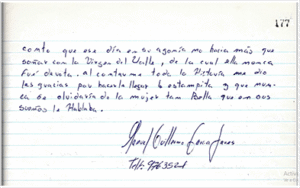 177
conto que ese día en su agonía no hacia más que
soñar con la Virgen del Valle, de la cual ella nunca
fué devota. Al contarme toda la Historia me dio
las gracias por hacerle llegar la estampita y que nunca
se olvidaría de la mujer tan Bella que en sus
sueños le Hablaba.